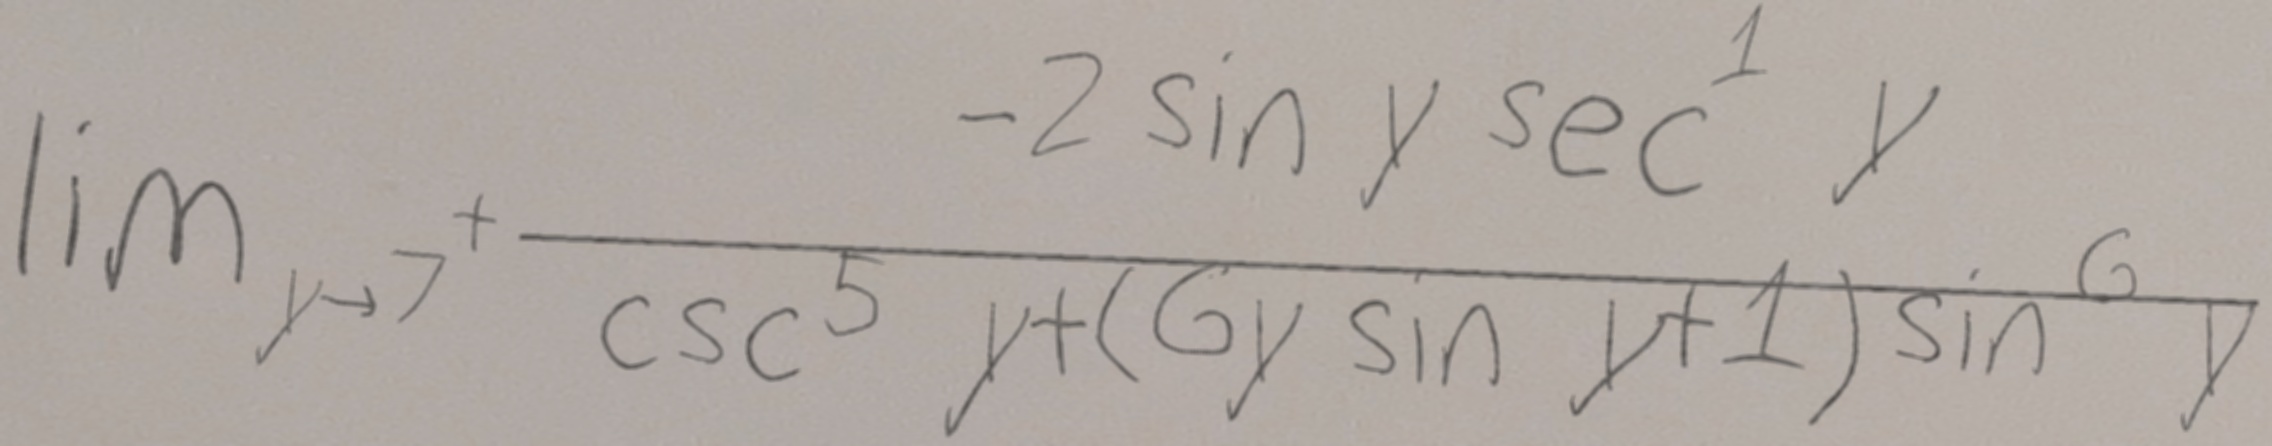 \lim_{y \to 7^+} \frac{-2 \sin y \sec^1 y}{\csc^5 y + (6y \sin y + 1) \sin^6 y}